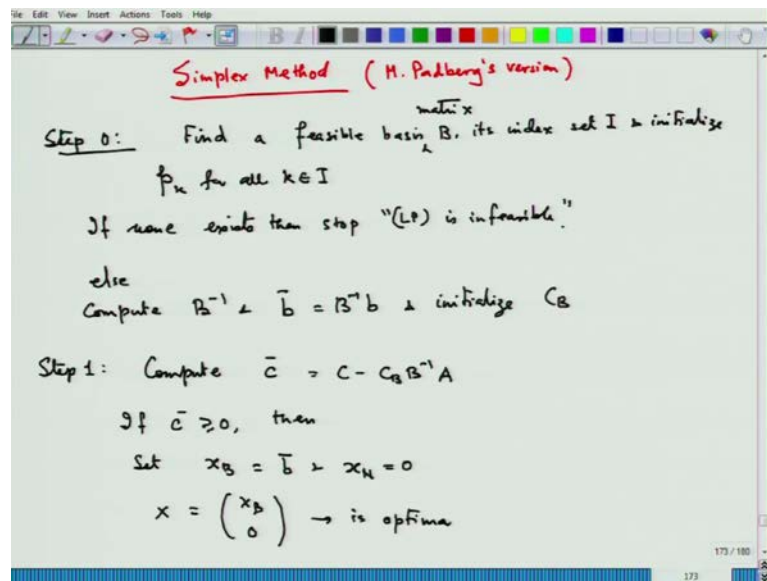 File Edit View Insert Actions Tools Help
Simplex Method (M. Padberg's version)
matrix
Step 0: Find a feasible basis B, its index set I & initialize
p_k for all k ∈ I
If none exists then stop "(LP) is infeasible."
else
Compute B⁻¹ & b̄ = B⁻¹b & initialize C_B
Step 1: Compute c̄ = C - C_B B⁻¹ A
If c̄ ≥ 0, then
Set x_B = b̄ & x_N = 0
x = (x_B 0) → is optima
173 / 180
173